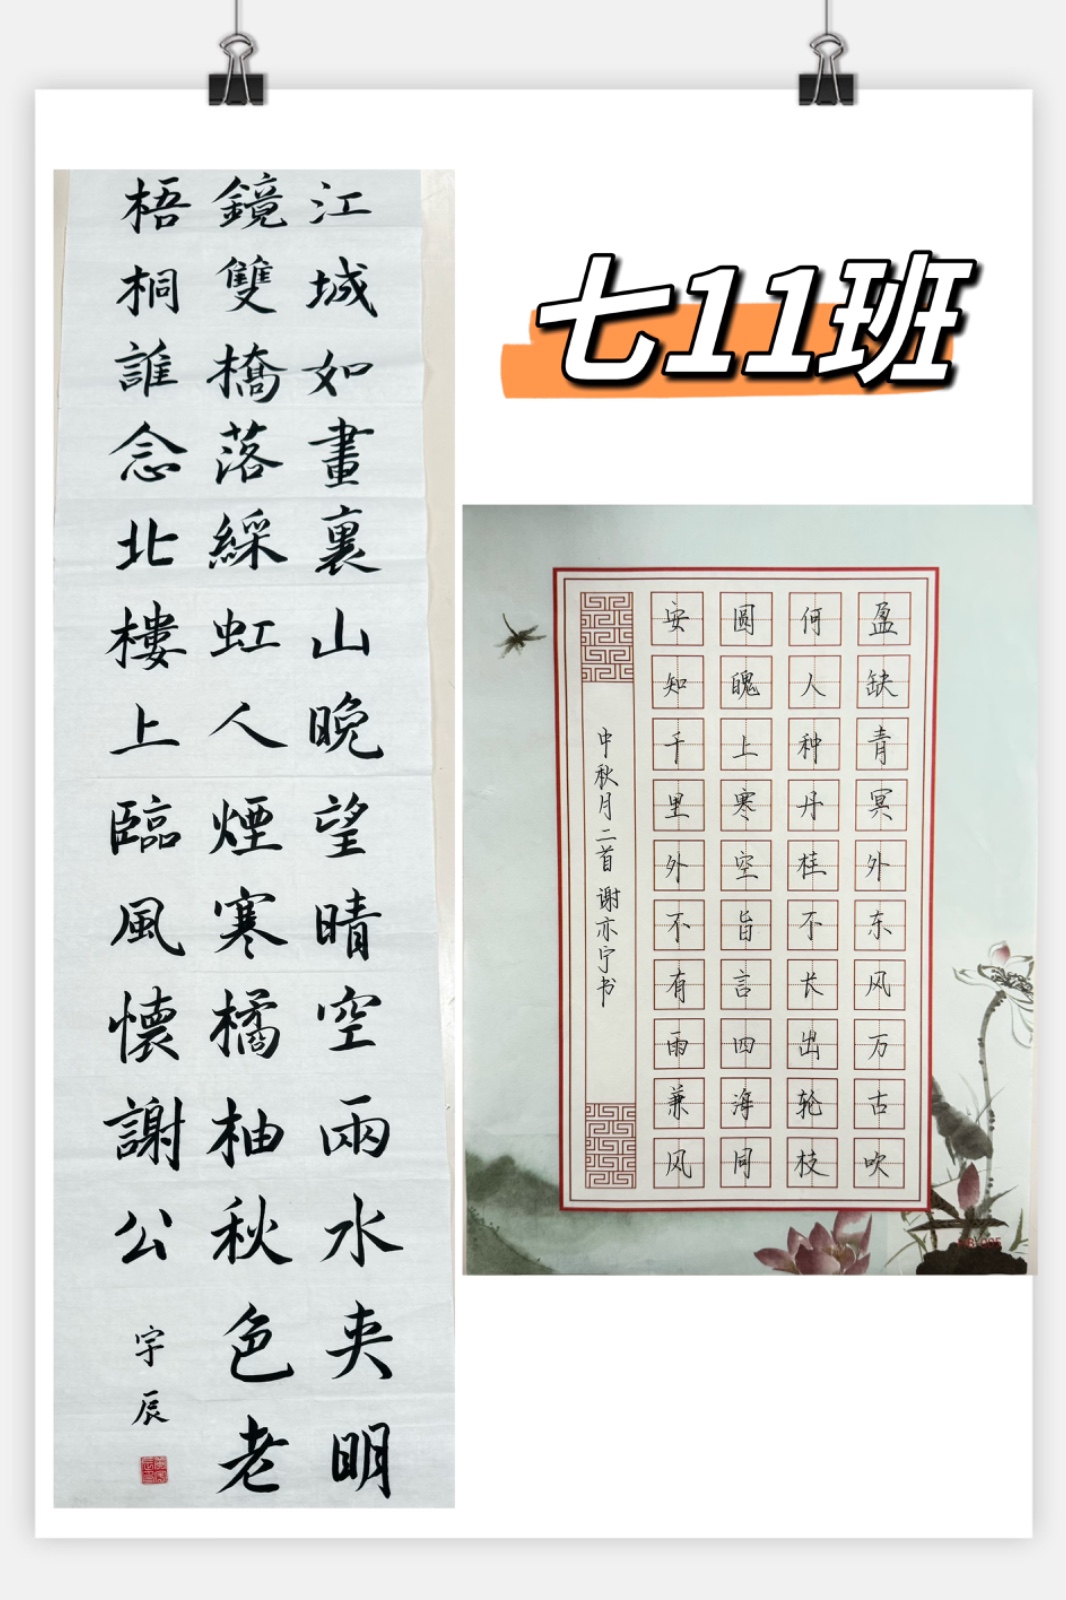 七11班
江城如畫裏山晚望晴空兩水夾明
鏡雙橋落綵虹人煙寒橘柚秋色老
梧桐誰念北樓上臨風懷謝公
宇辰
盈缺青冥外东风万古吹
何人种丹桂不长出轮枝
圆魄上寒空旨言四海同
安知千里外不有雨兼风
中秋月二首 谢亦宁书